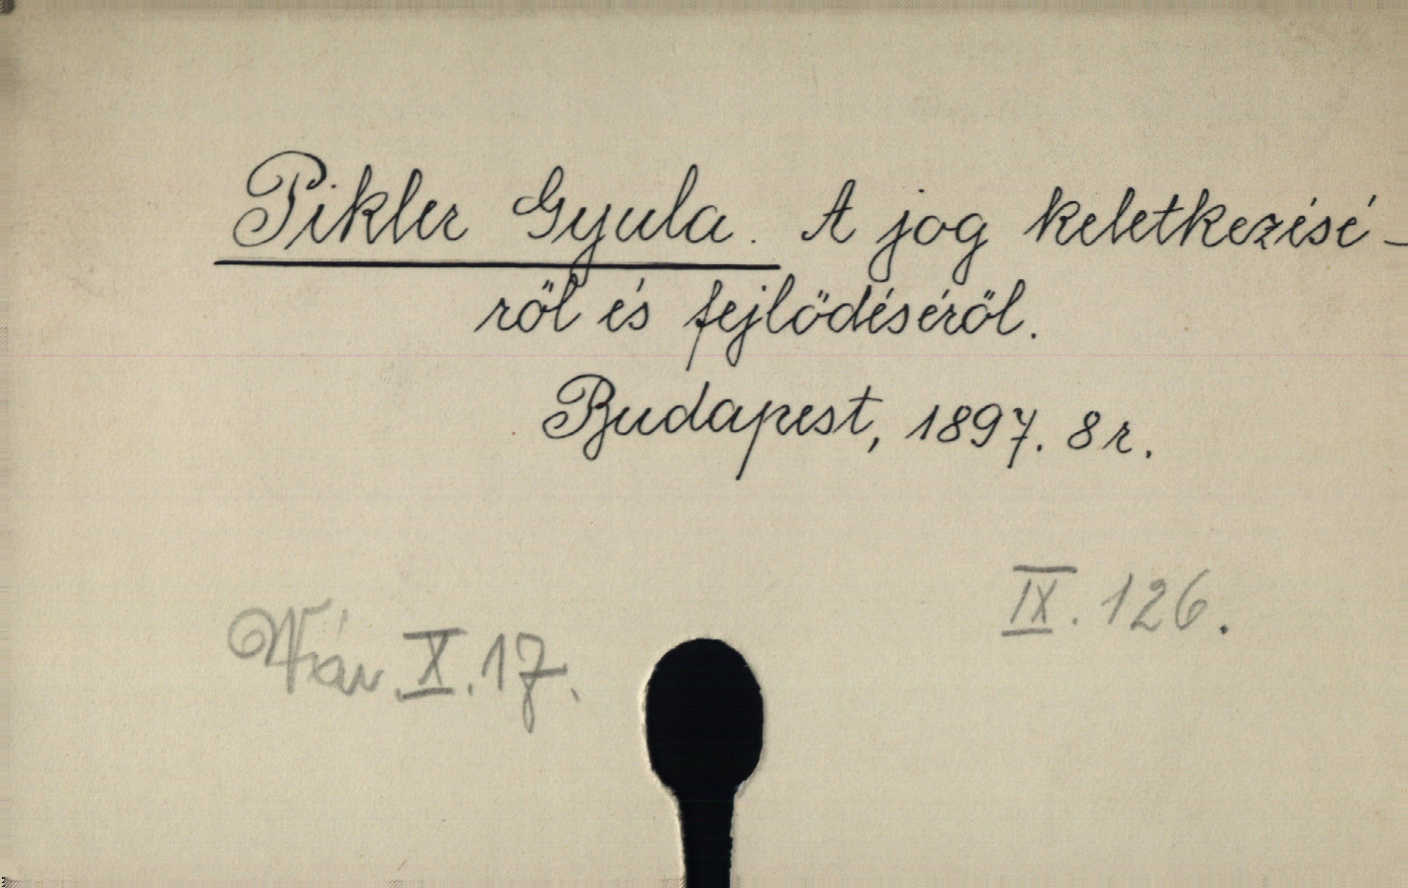 Pikler Gyula. A jog keletkezésé-
ről és fejlődéséről.
Budapest, 1897. 8r.
IX. 126.
X. 17.